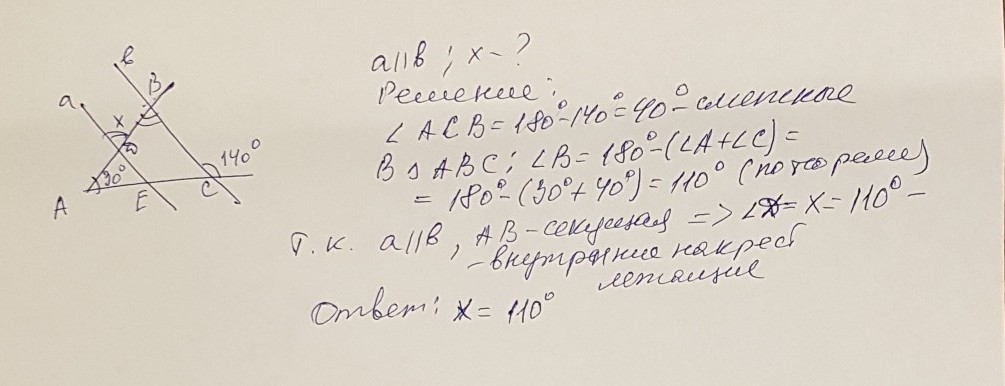 a||b ; x - ?
Решение:
∠ACB = 180° - 140° = 40° - смежные
В △ ABC; ∠B = 180° - (∠A + ∠C) =
= 180° - (30° + 40°) = 110° (по теореме)
Т.к. a||b, AB - секущая => ∠ = x = 110° -
- внутренние накрест
лежащие
Ответ: x = 110°
a
b
B
x
30°
140°
A
E
C